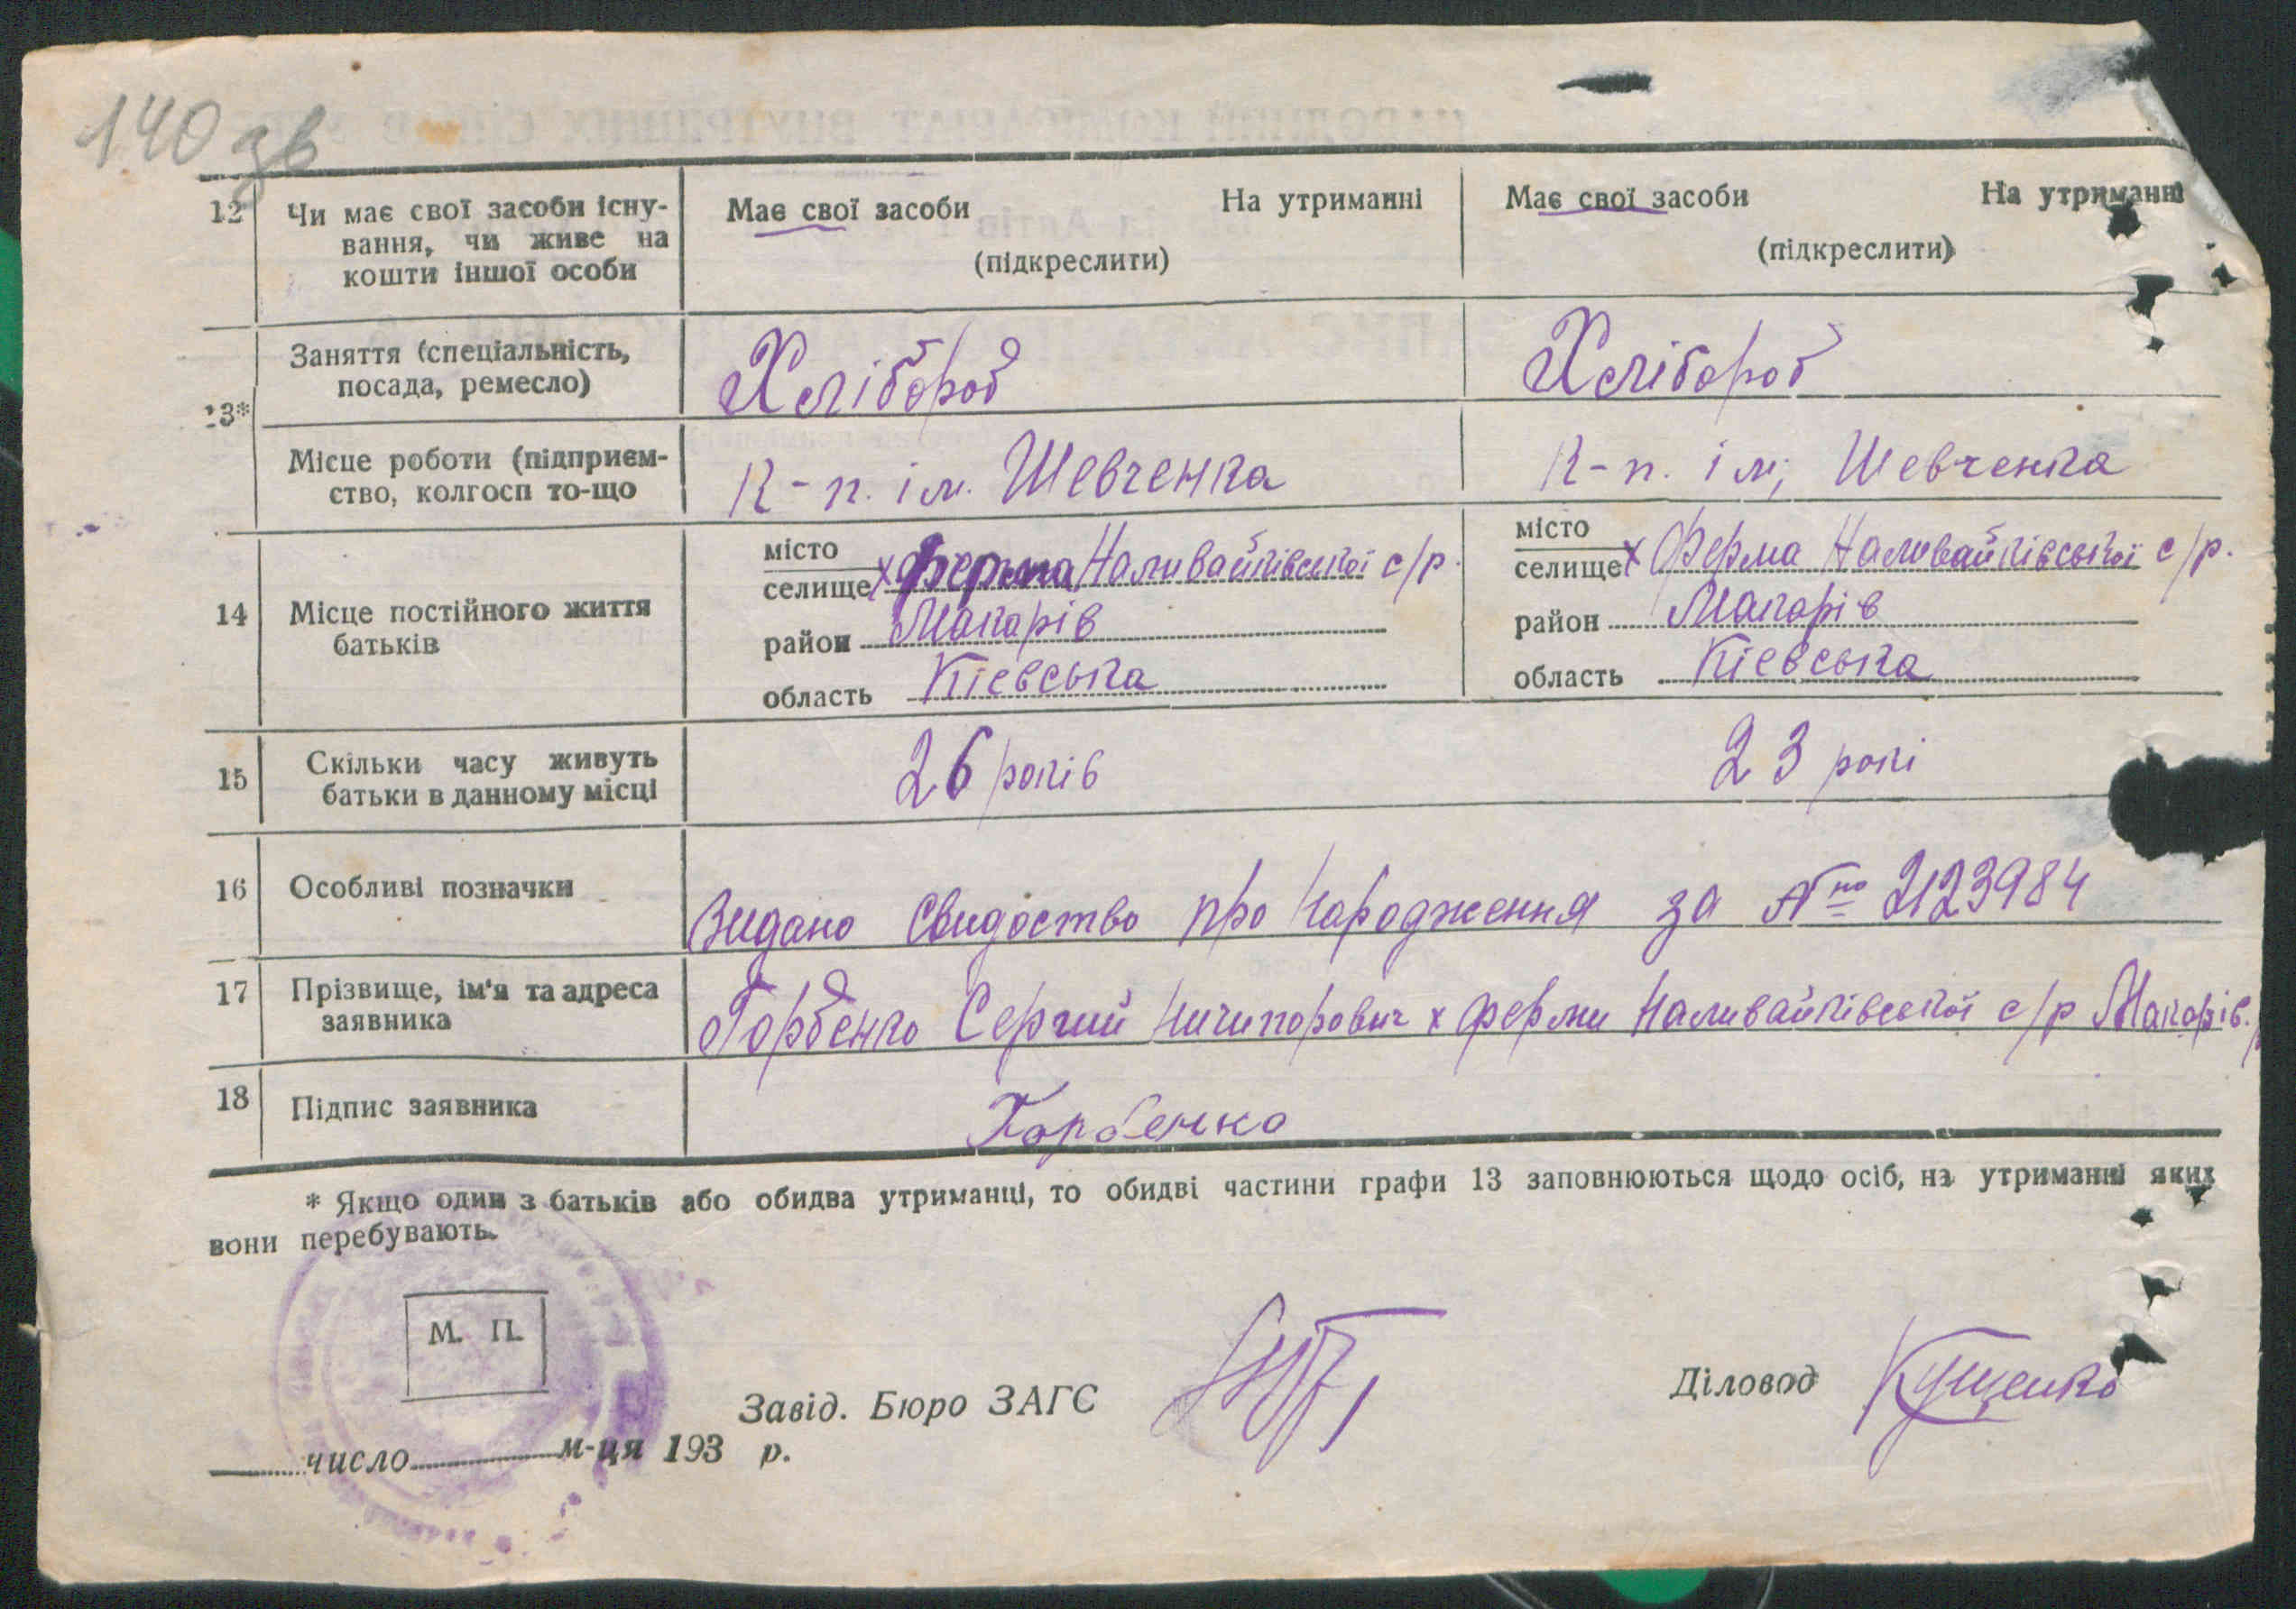 140 зв
12 Чи має свої засоби існу- Має свої засоби На утриманні Має свої засоби На утриманні
вання, чи живе на (підкреслити) (підкреслити)
кошти іншої особи
13* Заняття (спеціальність, Хлібороб Хлібороб
посада, ремесло)
Місце роботи (підприєм- К-п. ім. Шевченка К-п. ім; Шевченка
ство, колгосп то-що
14 Місце постійного життя
батьків
місто
селище х Ферма Наливайківської с/р.
район Макарів
область Кіевська
місто
селище х Ферма Наливайківської с/р.
район Макарів
область Кіевська
15 Скільки часу живуть 26 років 23 рокі
батьки в данному місці
16 Особливі позначки Видано Свидоство про Народження за № 2123984
17 Прізвище, ім'я та адреса Горбенко Сергий Ничипорович х ферми Наливайківської с/р Макарів.
заявника
18 Підпис заявника Горбенко
* Якщо один з батьків або обидва утриманці, то обидві частини графи 13 заповнюються щодо осіб, на утриманні яких
вони перебувають.
М. П.
Завід. Бюро ЗАГС Діловод Кущенко
число м-ця 193 р.